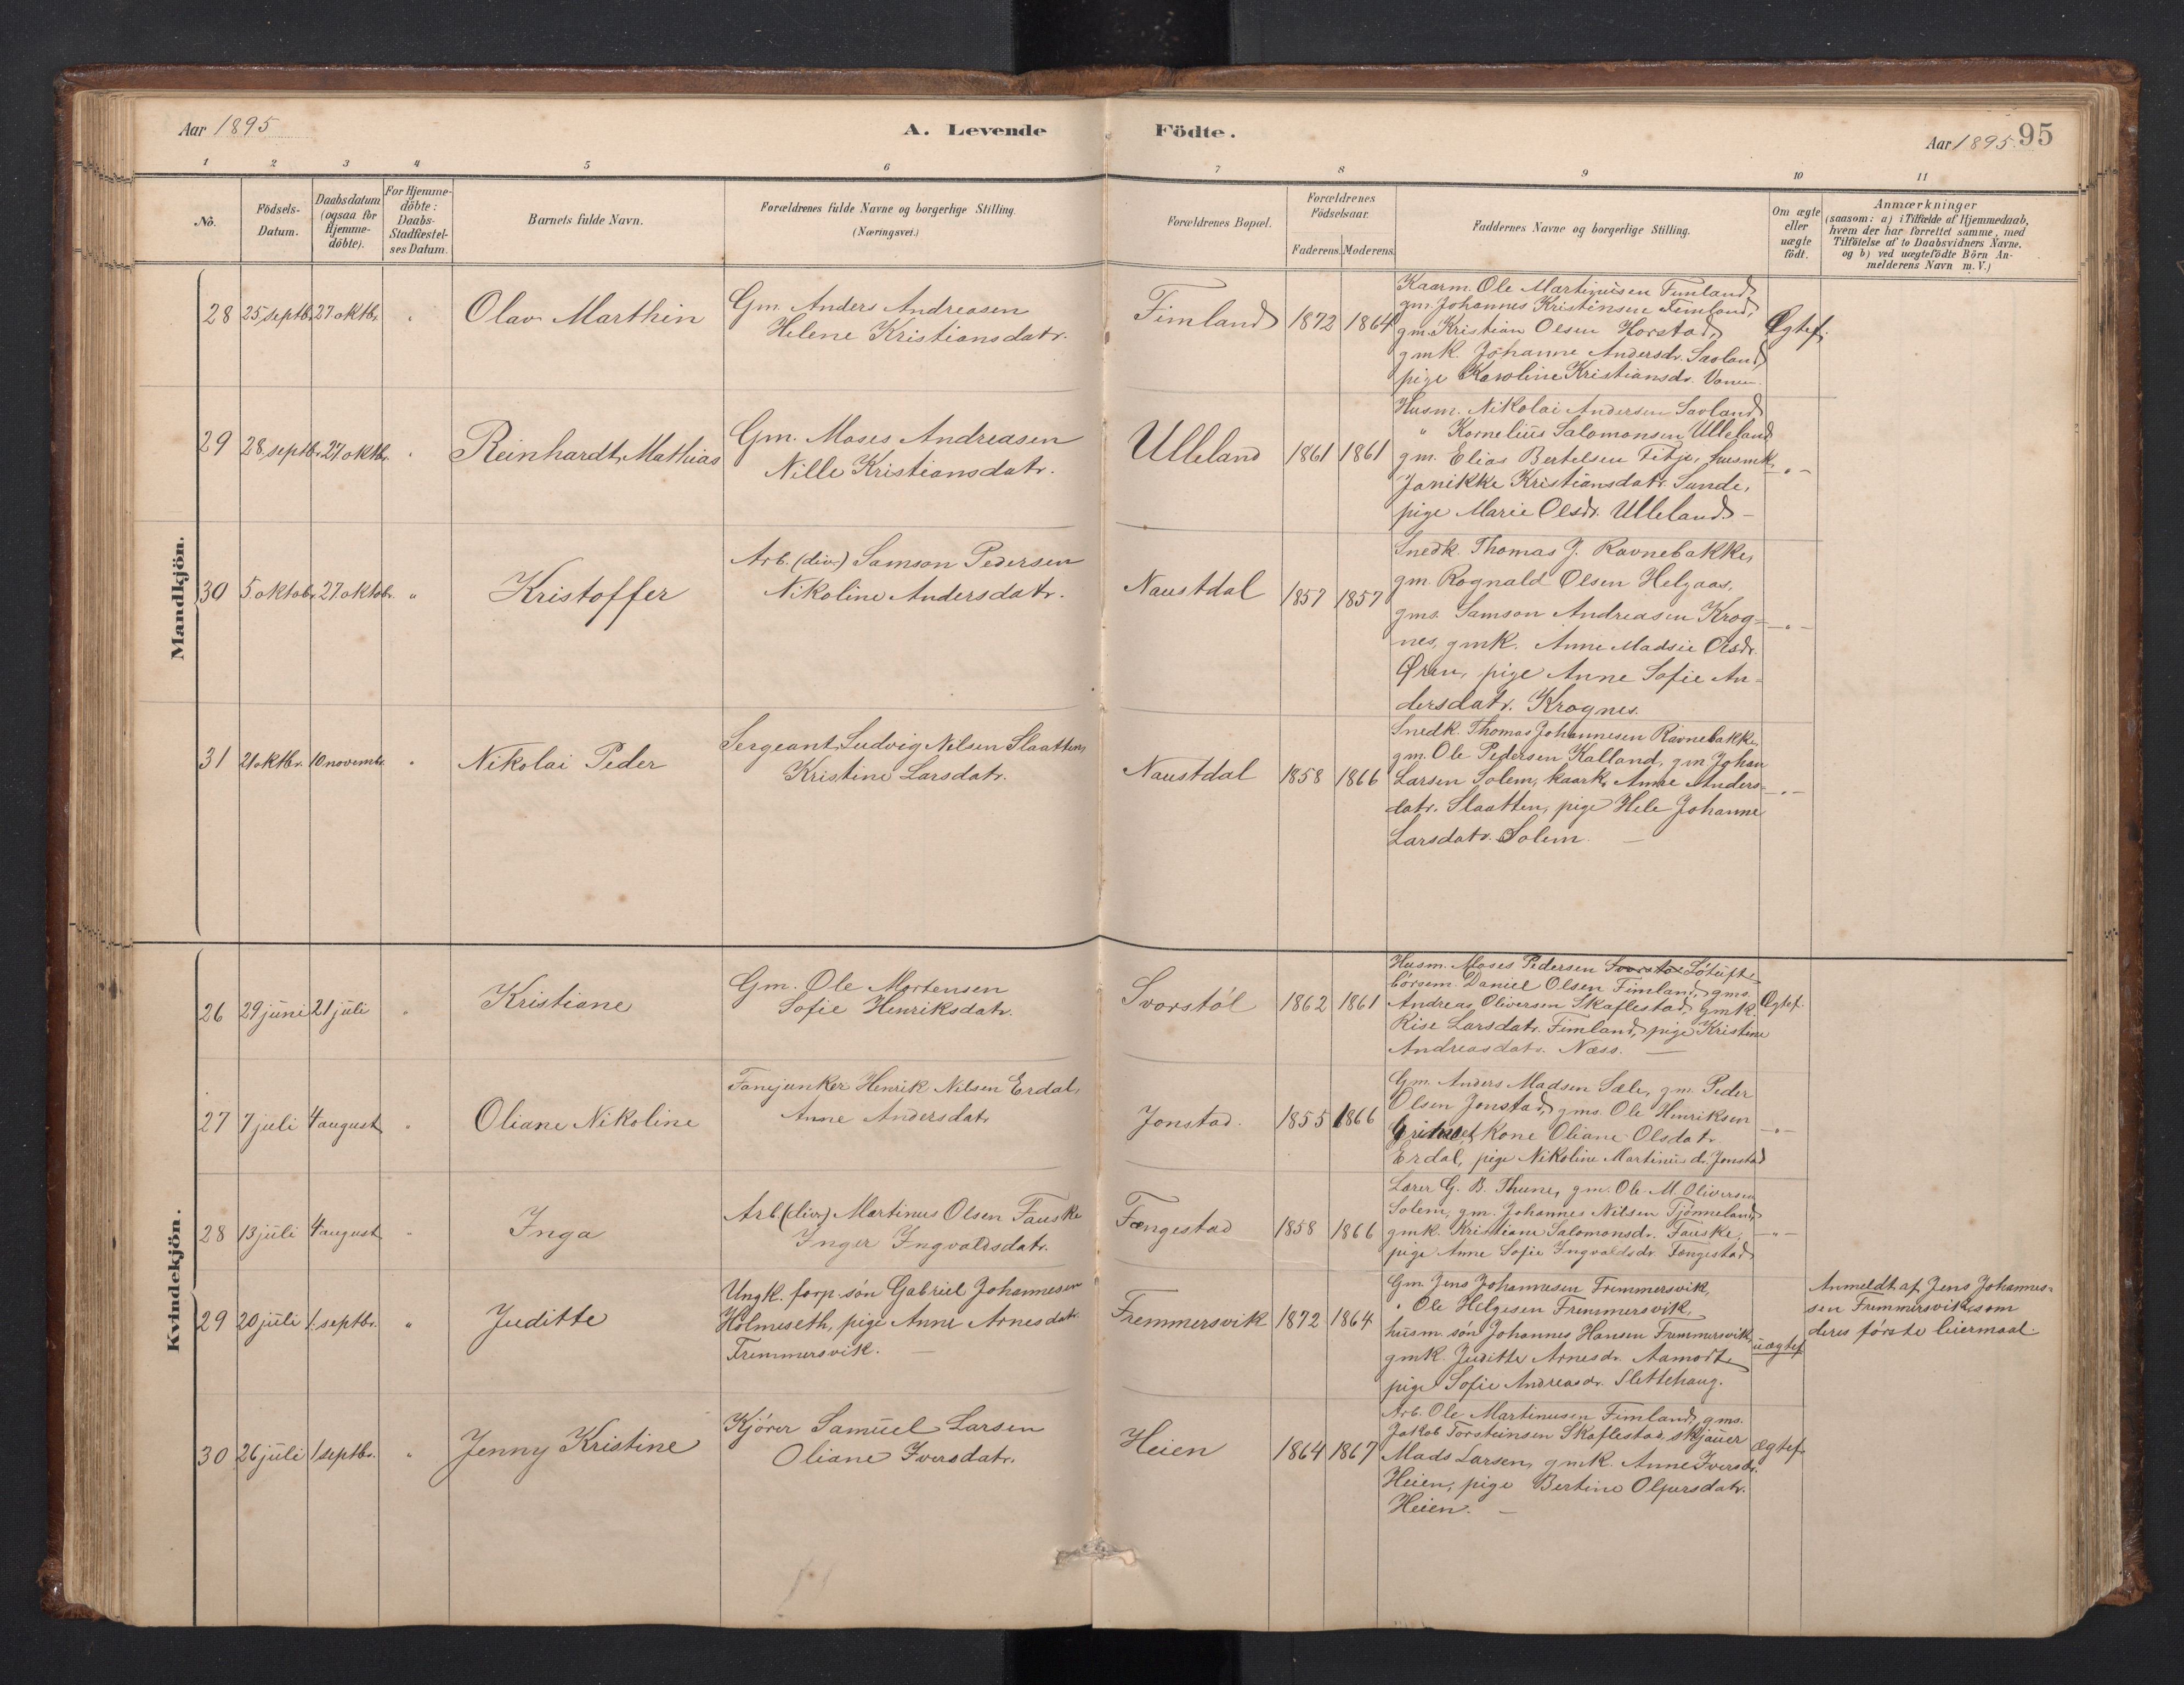 Aar 1895
A. Levende Födte.
Aar 1895. 95
1 2 3 4 5 6 7 8 9 10 11
No.
Födsels-Datum.
Daabsdatum (ogsaa for Hjemme-döbte).
For Hjemme-döbte: Daabs-Stadfæstel-ses Datum.
Barnets fulde Navn.
Forældrenes fulde Navne og borgerlige Stilling.
(Næringsvei.)
Forældrenes Bopæl.
Forældrenes Födselsaar.
Faderens. Moderens.
Faddernes Navne og borgerlige Stilling.
Om ægte eller uægte födt.
Anmærkninger
(saasom: a) i Tilfælde af Hjemmedaab,
hvem der har forrettet samme, med
Tilföielse af to Daabsvidners Navne.
og b) ved uægtefödte Börn An-
melderens Navn m. V.)
Mandkjön.
28 25 septb. 27 oktb. " Olav Marthin
Gm. Anders Andreasen
Helene Kristiansdatr.
Fimland 1872 1864
Kaarm. Ole Martinusen Fimland,
gm. Johannes Kristensen Fimland,
gm. Kristian Olsen Horstad,
gmk. Johanne Andersdr. Savland,
pige Karoline Kristiansdr. Vonen.
Ægtef.
29 28 septb. 27 oktb. " Reinhardt Mathias
Gm. Moses Andreasen
Nille Kristiansdatr.
Ulleland 1861 1861
Husm. Nikolai Andersen Savland
" Kornelius Salomonsen Ulleland
gm. Elias Bertelsen Fitje, husmk.
Janikke Kristiansdatr. Sunde,
pige Marie Olsdr. Ulleland. –
– " –
30 5 oktob. 27 oktob. " Kristoffer
Arb. (div.) Samson Pedersen
Nikoline Andersdatr.
Naustdal 1857 1857
Snedk. Thomas J. Ravnebakke,
gm. Rognald Olsen Helgaas,
gms. Samson Andreasen Krog=
nes, gmk. Anne Madsie Olsdr.
Øren, pige Anne Sofie An=
dersdatr. Krognes.
– " –
31 21 oktbr. 10 novembr. " Nikolai Peder
Sergeant Ludvig Nilsen Slaatten,
Kristine Larsdatr.
Naustdal 1858 1866
Snedk. Thomas Johannesen Ravnebakke,
gm. Ole Pedersen Kalland, gm Johan
Larsen Solem, kaark. Anne Anders=
datr. Slaatten, pige Hele Johanne
Larsdatr. Solem. –
– " –
Kvindekjön.
26 29 juni 21 juli " Kristiane
Gm. Ole Mortensen
Sofie Henriksdatr.
Svorstöl 1862 1861
Husm. Moses Pedersen Svorstöl Lötuft,
börsem. Daniel Olsen Fimland, gms.
Andreas Oliversen Skaflestad, gmk.
Rise Larsdatr. Fimland, pige Kristine
Andreasdatr. Næss. –
Ægtef.
27 7 juli 4 august " Oliane Nikoline
Fanejunker Henrik Nilsen Erdal,
Anne Andersdatr
Jonstad. 1855 1866
Gm. Anders Madsen Sæle, gm. Peder
Olsen Jonstad, gms. Ole Henriksen
Kone Oliane Olsdatr.
Erdal, pige Nikoline Martinusdr. Jonstad
– " –
28 13 juli 4 august " Inga
Arb (div.) Martinus Olsen Fauske
Inger Ingvaldsdatr.
Fængestad 1858 1866
Lærer G. B. Thune, gm. Ole M. Oliversen
Solem, gm. Johannes Nilsen Tjönneland,
gmk. Kristiane Salomonsdr. Fauske,
pige Anne Sofie Ingvaldsdr. Fængestad
– " –
29 20 juli 1. septbr. " Juditte
Ungk. forp. sön Gabriel Johannesen
Holmeseth, pige Anne Arnesdatr.
Fremmersvik. –
Fremmersvik 1872 1864
Gm. Jens Johannesen Fremmersvik,
" Ole Helgesen Fremmersvik,
husm. sön Johannes Hansen Fremmersvik,
gmk. Juditte Arnesdr. Aamodt,
pige Sofie Andreasdr. Slettehaug.
uægtef
Anmeldt af Jens Johannes=
sen Fremmersvik som
deres förste leiermaal.
30 26 juli 1 septbr. " Jenny Kristine
Kjörer Samuel Larsen
Oliane Iversdatr.
Heien 1864 1867
Arb. Ole Martinusen Fimland, gms.
Jakob Torsteinsen Skaflestad, skjauer
Mads Larsen, gmk. Anne Iversdr.
Heien, pige Bertine Olpersdatr.
Heien. –
Ægtef.